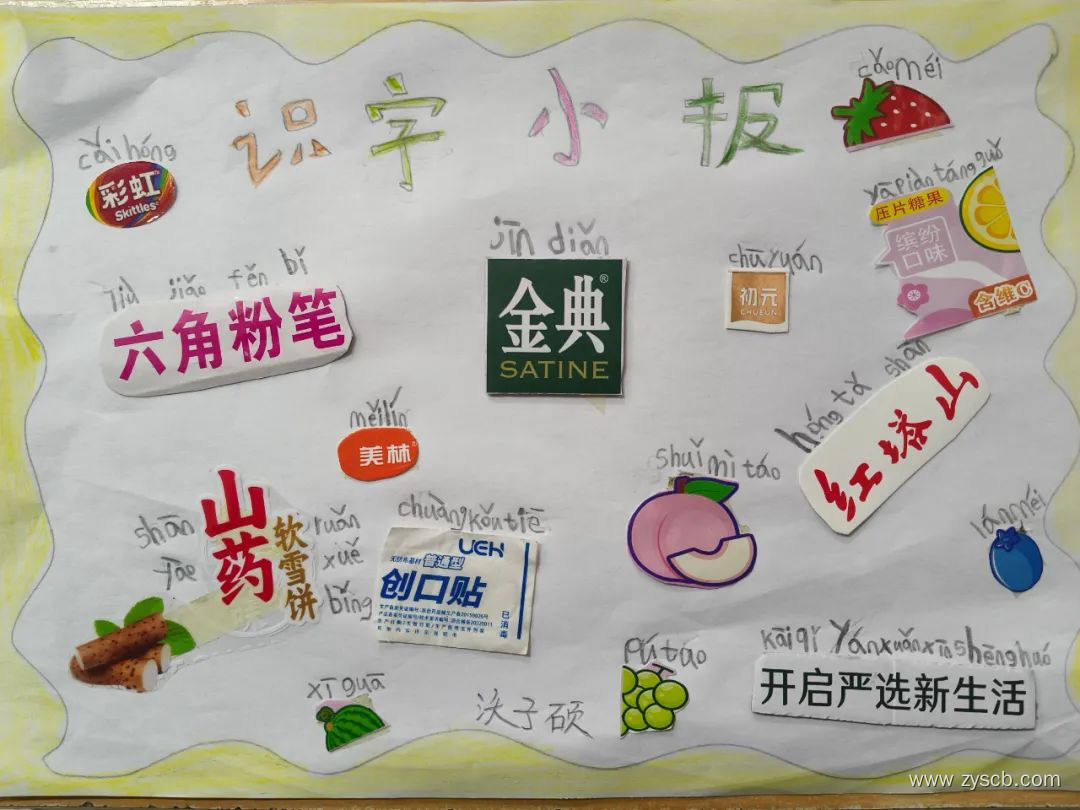 识字小报
cǎoméi
cǎi hóng
彩虹
Skittles
yāpiàntángguǒ
压片糖果
缤纷
口味
含维C
jīn diǎn
金典®
SATINE
chūyuán
初元
CHUEUN
liù jiǎo fěn bǐ
六角粉笔
hóng tǎ shān
红塔山
měilín
美林
shuǐ mì táo
shān
山药
软雪饼
ruǎn
xuě
bǐng
chuàngkǒutiē
UEK
普通型
创口贴
已消毒
lánméi
pútáo
kāiqǐ yánxuǎnxīnshēnghuó
开启严选新生活
xīguā
子硕
www.zyscb.com